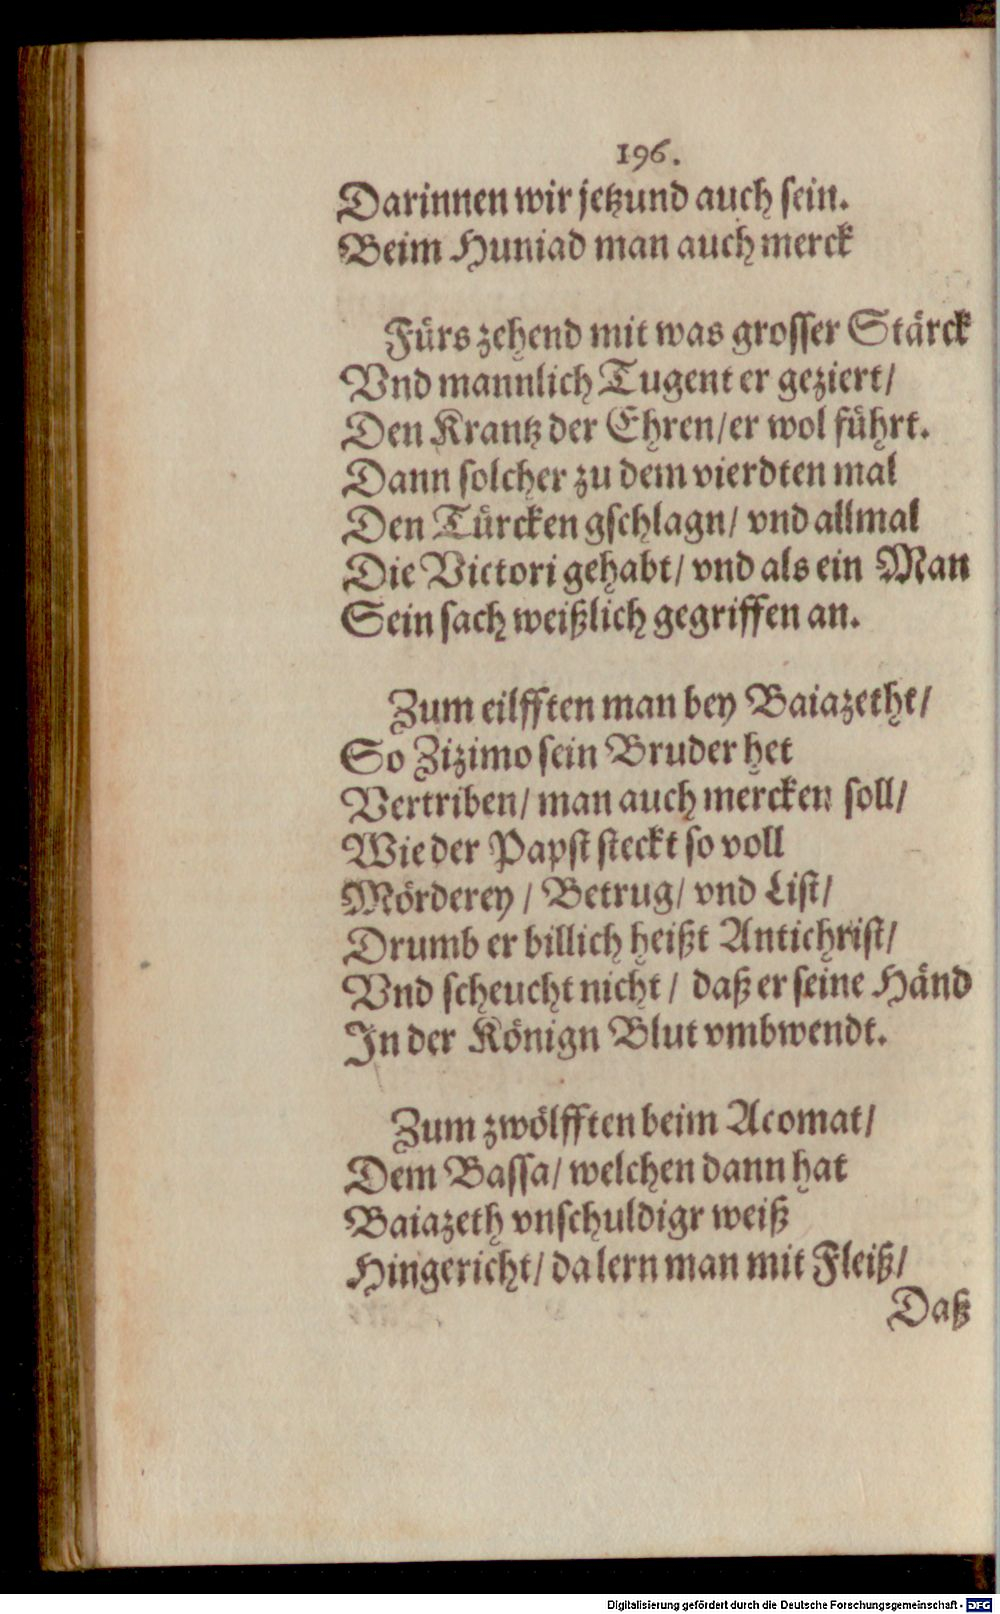 196.
Darinnen wir jetzund auch sein.
Beim Huniad man auch merck
Fürs zehend mit was grosser Stärck
Vnd mannlich Tugent er geziert/
Den Krantz der Ehren/er wol führt.
Dann solcher zu dem vierdten mal
Den Türcken gschlagn/ vnd allmal
Die Victori gehabt/ vnd als ein Man
Sein sach weißlich gegriffen an.
Zum eilfften man bey Baiazetht/
So Zizimo sein Bruder het
Vertriben/ man auch mercken soll/
Wie der Papst steckt so voll
Mörderey/ Betrug/ vnd List/
Drumb er billich heißt Antichrist/
Vnd scheucht nicht/ daß er seine Händ
In der Könign Blut vmbwendt.
Zum zwölfften beim Acomat/
Dem Bassa/ welchen dann hat
Baiazeth vnschuldigr weiß
Hingericht/ da lern man mit Fleiß/
Daß
Digitalisierung gefördert durch die Deutsche Forschungsgemeinschaft - DFG